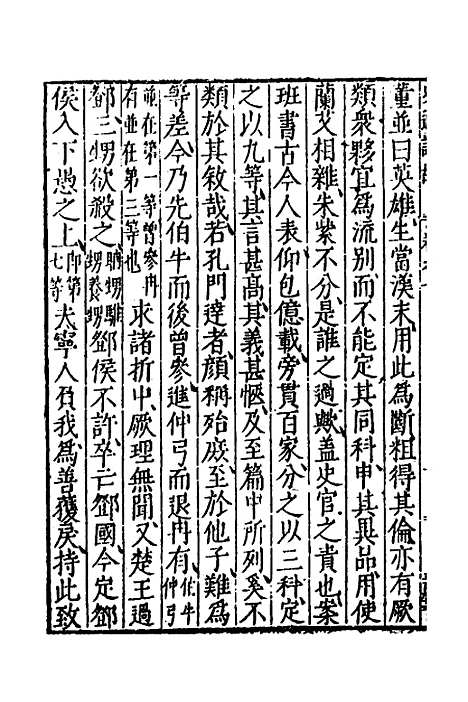 董並曰英雄生當漢末用此為斷粗得其倫亦有厥
類衆夥宜為流別而不能定其同科申其異品用使
蘭艾相雜朱紫不分是誰之過歟蓋史官之責也案
班書古今人表仰包億載旁貫百家分之以三科定
之以九等其言甚高其義甚愜及至篇中所列奚不
類於其敘哉若孔門達者顏稱殆庶至於他子難為
等差今乃先伯牛而後曾參進仲弓而退冉有伯牛仲弓
並在第一等曾參冉有並在第三等也求諸折中厥理無聞又楚王過
鄧三甥欲殺之聃甥騅甥養甥鄧侯不許卒亡鄧國今定鄧
侯入下愚之上即第七等夫寧人負我為善獲戾持此致